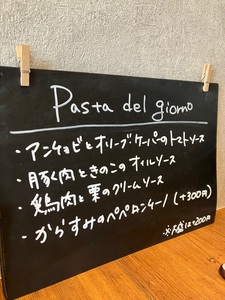 Pasta del giorno
・アンチョビとオリーブケーパーのトマトソース
・豚肉ときのこのオイルソース
・鶏肉と栗のクリームソース
・からすみのペペロンチーノ(+300円)
※大盛は+200円